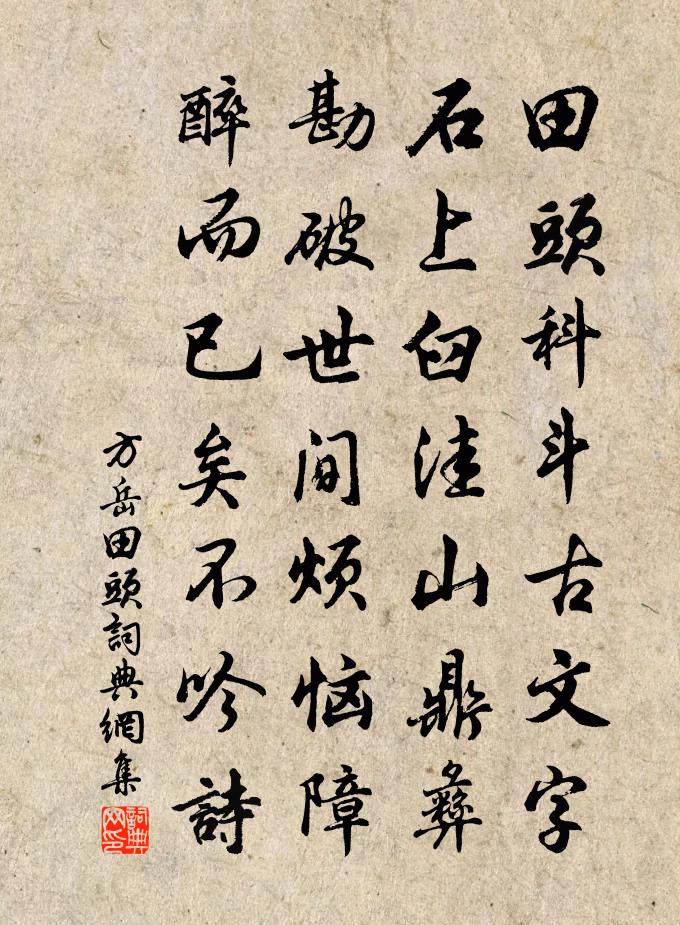 田頭科斗古文字
石上臼洼山鼎彝
勘破世间烦恼障
醉而已矣不吟詩
方岳田頭詞典網集
詞典网印